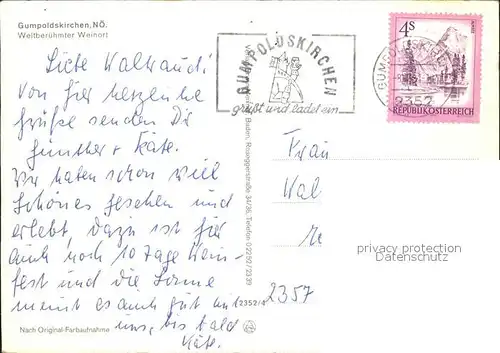 Gumpoldskirchen, NÖ.
Weltberühmter Weinort
GUMPOLDSKIRCHEN
grüßt und ladet ein
4S
REPUBLIK ÖSTERREICH
2352
Liebe Waltraud!
Von hier herzliche
Grüße senden Dir
Günther + Käte.
Wir haben schon viel
Schönes gesehen und
erlebt, dazu ist hier
auch noch 10 Tage Wein-
fest und die Sonne
meint es auch gut mit
uns, bis bald
Käte.
Frau
Wal
2357
Baden, Roseggerstraße 34/36, Telefon 02252/23 39
2352/4
Nach Original-Farbaufnahme
privacy protection
Datenschutz